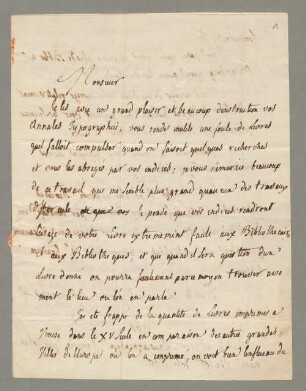 Monsieur
J'ai lû avec un grand plaisir et beaucoup d'instruction vos
Annales Typographici, vous rendez inutile une foule de livres
qu'il falloit compulser quand on faisoit quelques recherches
et vous les abregez par vos indices; je vous remercie beaucoup
de ce travail qui me semble plus grand qu'aucun des travaux
d'Hercule je pense que vos indices rendront
l'usage de votre livre extremement facile aux Bibliothecaires
et aux Bibliotheques, et que quand il sera question d'un
livre donné on pourra par ce moyen trouver aise
ment le lieu où l'on en parle.
J'ai été frappé de la quantité de livres imprimés a
Venise dans le XV siecle en comparaison des autres grandes
Villes de l'Europe où l'on a imprimé, on voit bien l'influence du